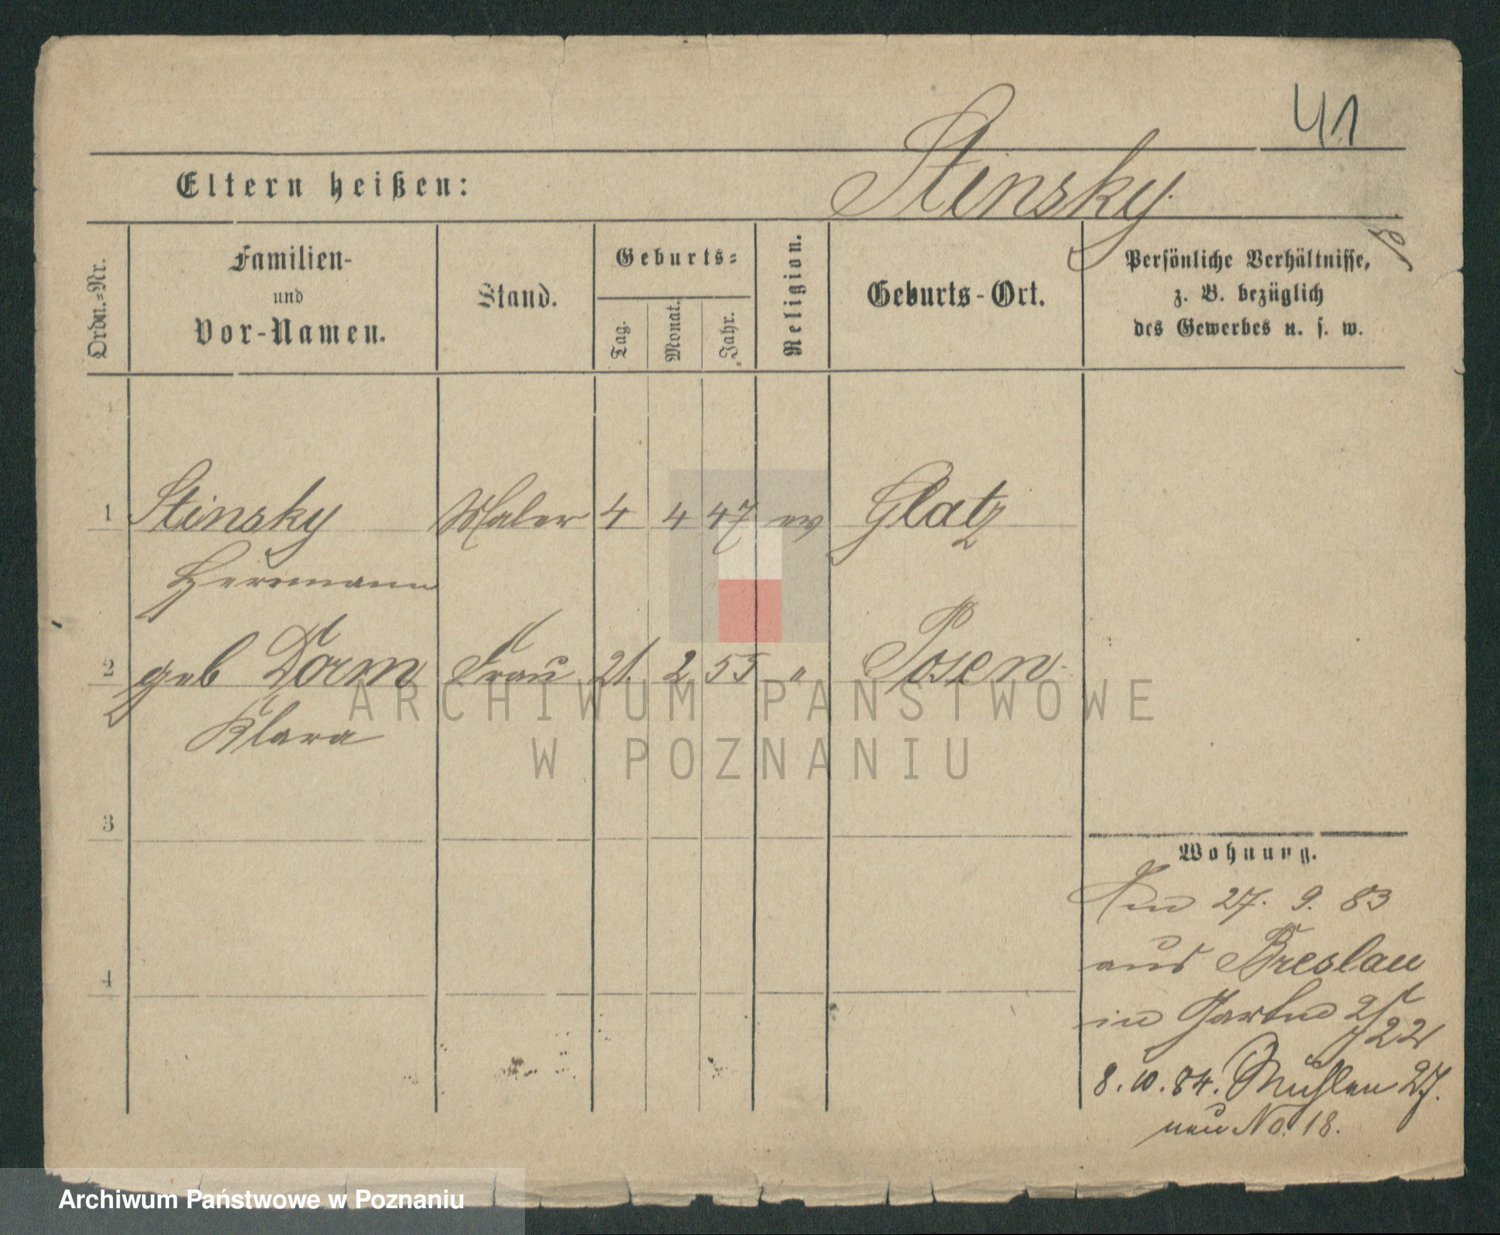 41
Eltern heißen: Stinsky
Ordn.-Nr.
Familien-
und
Vor-Namen.
Stand.
Geburts-
Tag.
Monat.
Jahr.
Religion.
Geburts-Ort.
Persönliche Verhältnisse,
z. B. bezüglich
des Gewerbes u. s. w.
1 Stinsky Maler 4 4 47 ev Glatz
Herrmann
2 geb Dorm Frau 21. 2 55 " Posen
Klara
3
4
Wohnung.
27. 9. 83
aus Breslau
in
22
8. 10. 84. Mühlen 27.
neu No. 18.
ARCHIWUM PAŃSTWOWE
W POZNANIU
Archiwum Państwowe w Poznaniu